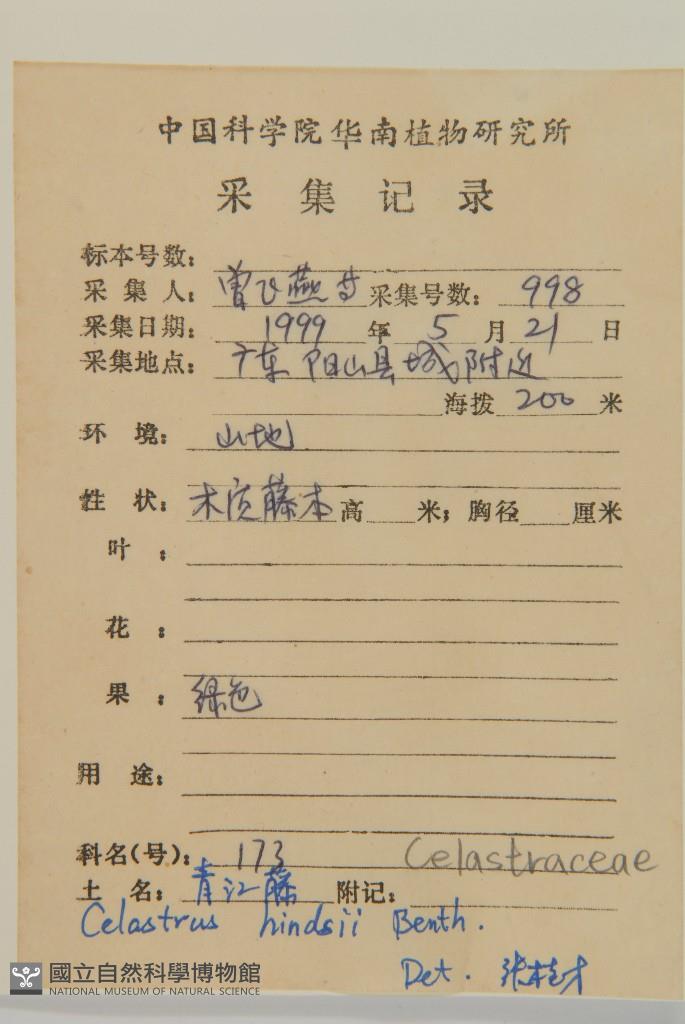 中国科学院华南植物研究所
采集记录
标本号数：
采集人：曾飞燕等 采集号数：998
采集日期：1999年5月21日
采集地点：广东阳山县城附近
海拨 200 米
环境：山地
性状：木质藤本 高 米；胸径 厘米
叶：
花：
果：绿色
用途：
科名(号)：173 Celastraceae
土名：青江藤 附记：
Celastrus hindsii Benth.
Det. 张桂才
國立自然科學博物館
NATIONAL MUSEUM OF NATURAL SCIENCE